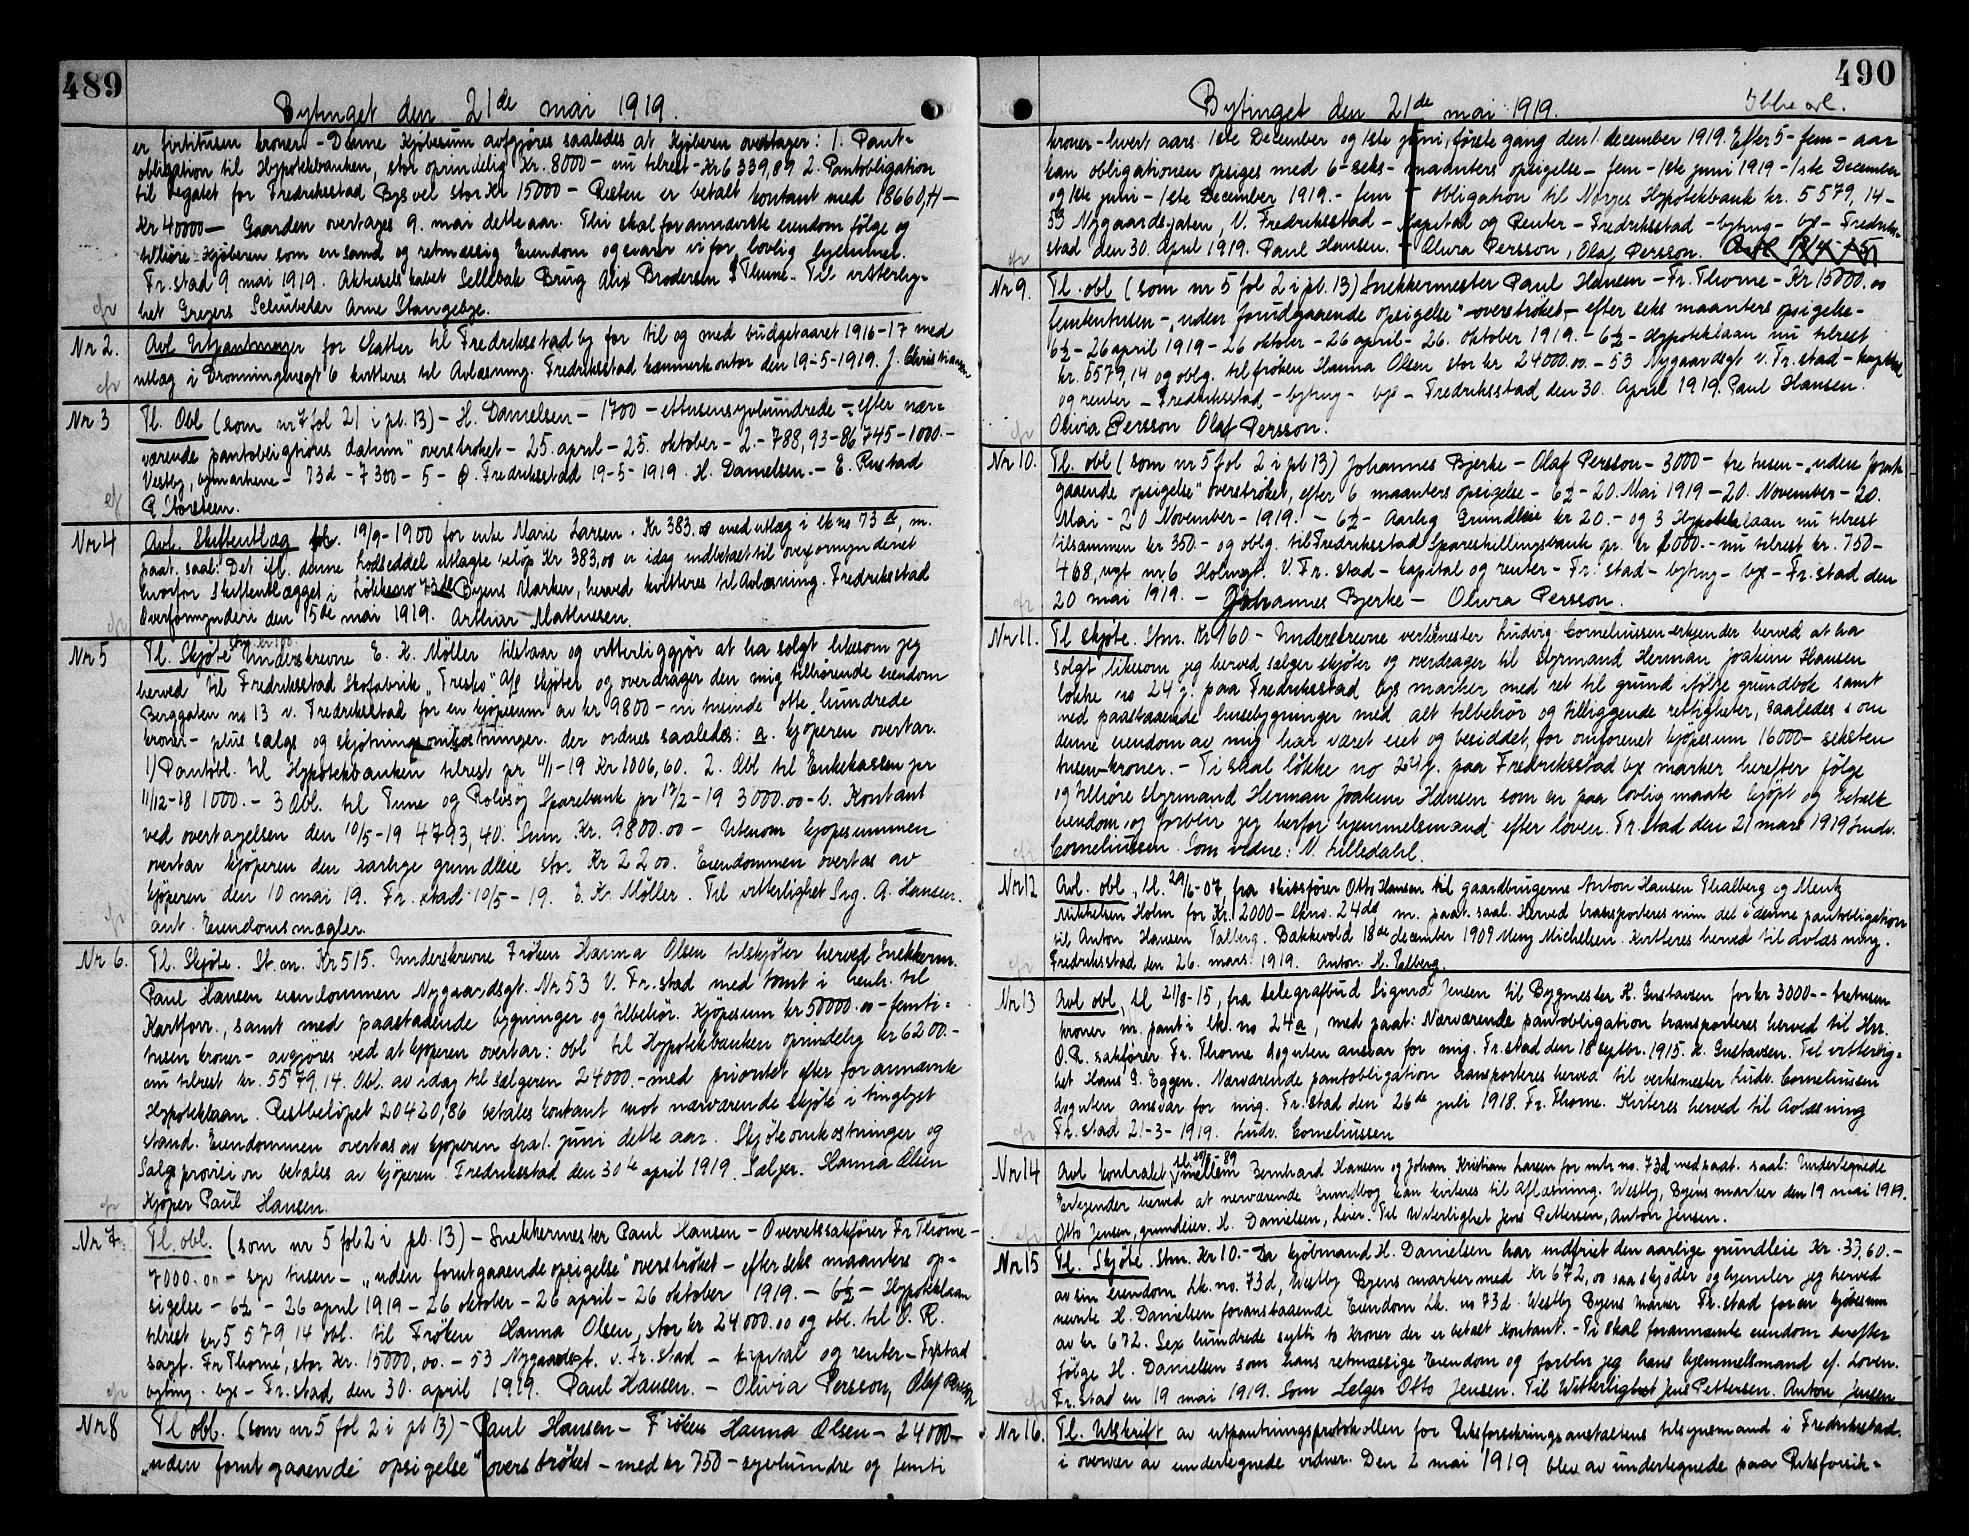 489
Bytinget den 21de mai 1919.
er firtitusen kroner. - Denne Kjøbesum avgjøres saaledes at Kjøberen overtager: 1. Pant-
obligation til Hypotekbanken, stor oprindelig Kr. 8000 - nu tilrest - Kr 6339,89 2. Pantobligation
til Legatet for Fredriksstad Bys vel stor Kr 15000 - Resten er betalt kontant med 18660,11 -
Kr 40000 - Gaarden overtages 9. mai dette aar. Thi skal forannævnte eiendom følge og
tilhøre Kjøberen som en sand og retmæssig Eiendom og svarer vi for lovlig hjemmel.
Fr.stad 9 mai 1919. Aktieselskabet Sellebak Brug Alix Brodersen Thune. Til vitterlig-
het Gregers Schübeler Arne Stangebye.
Nr 2. Avl Utpantninger for Skatter til Fredriksstad by for til og med budgetaaret 1916-17 med
utlæg i Dronningensgt 6 kvitteres til Avlæsning. Fredriksstad kæmnerkontor den 19-5-1919. J. Christiansen
Nr 3 Tl. Obl (som nr 7 fol 21 i pb. 13) - H. Danielsen - 1700 - ettusensyvhundrede - "efter nær-
værende pantobligations datum" overstrøket - 25. april - 25. oktober - 2 - 788,93 - 86745 - 1000.-
Vestby, bymarkene - 73d - 7300 - 5 - Ø. Fredriksstad 19-5-1919. H. Danielsen. - E. Rustad
P. Torsteen.
Nr 4 Avl. Skifteutlæg 19/9-1900 for enke Marie Larsen. Kr 383.00 med utlæg i lk no 73d, m.
paat. saal: Det ifl. denne lodseddel utlagte beløp Kr 383,00 er idag indbetalt til overformynderiet
hvorfor Skifteutlægget i Løkkeno 73d Byens Marker, herved kvitteres til Avlæsning. Fredriksstad
Overformynderi den 15de mai 1919. Arthur Mathiesen.
Nr 5 Tl. Skjøte Stm. kr 100. Underskrevne E. K. Møller tilstaar og vitterliggjør at ha solgt likesom jeg
herved til Fredriksstad Skofabrik "Fresko" A/S skjøter og overdrager den mig tilhørende eiendom
Berggaten no 13 v. Fredriksstad for en kjøpesum av kr 9800 - ni tusinde otte hundrede
kroner - plus salgs og skjøtningsomkostninger. der ordnes saaledes: a. kjøperen overtar.
1) Pantobl. til Hypotekbanken tilrest pr 4/1-19 Kr 1006,60. 2. Obl til Enkekassen pr
11/12-18 1000.- 3 Obl. til Tune og Rolvsøy Sparebank pr 12/2-19 3000.00 - b. Kontant
ved overtagelsen den 10/5-19 4793,40. Sum Kr. 9800.00 - Utenom kjøpesummen
overtar kjøperen den aarlige grundleie stor Kr 22.00. Eiendommen overtas av
kjøperen den 10 mai 19. Fr.stad 10/5-19. E. K. Møller. Til vitterlighet Sig. A. Hansen.
aut. Eiendomsmægler.
Nr 6. Tl. Skjøte. St.m. Kr 515. Underskrevne Frøken Hanna Olsen tilskjøter herved Snekkerm.
Paul Hansen eiendommen Nygaardsgt. Nr 53 V. Fr.stad med tomt i henh. til
Kartforr., samt med paastaaende bygninger og tilbehør. Kjøpesum kr 50000.00 - femti-
tusen kroner - avgjøres ved at kjøperen overtar: obl til Hypotekbanken oprindelig kr 6200.-
nu tilrest kr. 5579.14. Obl. av idag til sælgeren 24000.- med prioritet efter forannævnte
Hypoteklaan. Restbeløpet 20420,86 betales kontant mot nærværende skjøte i tinglyst
stand. Eiendommen overtas av kjøperen fra 1. juni dette aar. Skjøteomkostninger og
Salgsprovision betales av kjøperen. Fredriksstad den 30te april 1919. Sælger. Hanna Olsen
Kjøper Paul Hansen.
Nr 7. Tl. obl. (som nr 5 fol 2 i pb. 13) - Snekkermester Paul Hansen - Overretssakfører Fr Thorne -
7000.00 - syv tusen - "uden forutgaaende opsigelse" overstrøket - efter seks maaneters op-
sigelse - 6½ - 26 april 1919 - 26 oktober - 26 april - 26 oktober 1919. - 6½ - Hypoteklaan
tilrest kr 5579,14 obl. til Frøken Hanna Olsen, stor kr 24000.00 og obl. til O. R.
sagf. Fr Thorne, stor Kr. 15000,00. - 53 Nygaardsgt. v. Fr.stad - kapital og renter - Frstad
byting - bys - Fr.stad den 30. april 1919. Paul Hansen. - Olivia Persson, Olaf Persson
Nr 8 Tl obl. (som nr 5 fol 2 i pb 13) - Paul Hansen - Frøken Hanna Olsen - 24000 -
"uden forutgaaende opsigelse" overstrøket - med kr 750 - syvhundre og femti
490
Bytinget den 21de mai 1919. Ibbe avl.
kroner - hvert aars 1ste December og 1ste juni, første gang den 1. december 1919. Efter 5 - fem - aar
kan obligationen opsiges med 6 - seks - maaneters opsigelse - fem - 1ste juni 1919 - 1ste December
og 1ste juni - 1ste December 1919. - fem - obligation til Norges Hypotekbank kr. 5579,14 -
53 Nygaardsgaten, V. Fredriksstad - Kapital og Renter - Fredriksstad - byting - by - Fredriks-
stad den 30. april 1919. Paul Hansen. - Olivia Persson, Olaf Persson.
Nr 9. Tl. obl (som nr 5 fol 2 i pb. 13) Snekkermester Paul Hansen - Fr. Thorne - Kr 15000.00
femtentusen - "uden forudgaaende opsigelse" - overstrøket - efter seks maaneters opsigelse -
6½ - 26 april 1919 - 26 oktober - 26 april - 26. oktober 1919. - 6½ - Hypoteklaan nu tilrest
kr. 5579,14 og oblg. til frøken Hanna Olsen stor kr 24000.00. - 53 Nygaardsgt v. Fr.stad - kapital
og renter - Fredriksstad - byting - bys - Fredriksstad den 30. April 1919. Paul Hansen.
Olivia Persson Olaf Persson.
Nr 10. Tl. obl (som nr 5 fol 2 i pb 13) Johannes Bjerke - Olaf Persson - 3000 - tre tusen - "uden forut
gaaende opsigelse" overstrøket, efter 6 maaneters opsigelse - 6½ - 20. Mai 1919 - 20. November - 20.
Mai - 20 November - 1919. - 6½ - Aarlig Grundleie kr 20. - og 3 Hypoteklaan nu tilrest
tilsammen kr 350.- og oblg. til Fredriksstad Spareskillingsbank opr. kr 1000.- nu tilrest kr. 750 -
468, nyt nr 6 Holmegt. V. Fr.stad - kapital og renter - Fr.stad - byting - bys - Fr.stad den
20 mai 1919. - Johannes Bjerke - Olivia Persson.
Nr 11. Tl skjøte. Stm. Kr 160 - Underskrevne verksmester Ludvig Corneliussen erkjender herved at ha
solgt, likesom jeg herved sælger skjøter og overdrager til Styrmand Herman Joakim Hansen
løkke no 24 g. paa Fredriksstad bys marker med ret til grund ifølge grundbok samt
med paastaaende husebygninger med alt tilbehør og tilliggende rettigheter, saaledes som
denne eiendom av mig har været eiet og besiddet, for omforenet kjøpesum 16000 - seksten
tusen kroner. - Ti skal løkke no 24 g. paa Fredriksstad by marker herefter følge
og tilhøre styrmand Herman Joakim Hansen som en paa lovlig maate kjøpt og betalt
eiendom og forblir jeg herfor hjemmelsmand efter loven. Fr.stad den 21 mars 1919 Ludv.
Corneliussen. Som vidne: N. Lilledahl.
Nr 12 Avl. obl, tl. 29/6-07, fra skibsfører Otto Hansen til gaardbrugerne Anton Hansen Thalberg og Mentz
Mikkelsen Holm for Kr. 2000 - lk no. 24dd m. paat. saal. Herved transporteres min del i denne pantobligation
til Anton Hansen Talberg. Bakkevold 18de december 1909 Menz Michelsen. Kvitteres herved til avlæsning.
Fredriksstad den 26. mars 1919. Anton H. Talberg.
Nr 13 Avl obl, tl 21/8-15, fra telegrafbud Sigurd Jensen til Bygmester K. Gustavsen for kr 3000 - tretusen
kroner m. pant i lk. no 24a, med paat: Nærværende pantobligation transporteres herved til Hr.
O.R. sakfører Fr. Thorne dog uten ansvar for mig. Fr.stad den 18 septbr. 1915. K. Gustavsen. Til vitterlig-
het Hans G. Eggen. Nærværende pantobligation transporteres herved til verksmester Ludv. Corneliussen
dog uten ansvar for mig. Fr.stad den 26de juli 1918. Fr. Thorne. Kviteres herved til Avlæsning
Fr.stad 21-3-1919. Ludv. Corneliussen
Nr 14 Avl kontrakt, mellem Bernhard Hansen og Johan Kristian Larsen for mtr no. 73d med paat. saal: Undertegnede
Erkjender herved at nerværende Grundbog kan kviteres til Aflæsning. Westby, Byens marker den 19 mai 1919.
Otto Jensen, grundeier. H. Danielsen, Leier. Til Witerlighet Jens Pettersen, Anton Jensen.
Nr 15 Tl. Skjøte. Stm. Kr 10. - Da kjøbmand H. Danielsen har indfriet den aarlige grundleie Kr. 33,60. -
av sin eiendom Lk. no. 73d, Westby Byens marker med Kr 672,00 saa skjøder og hjemler jeg herved
nevnte H. Danielsen foranstaaende Eiendom Lk. no 73d Westby Byens Marker Fr.stad for en kjøbesum
av kr 672. Sex hundrede sytti to Kroner der er betalt Kontant. - Ti skal forannævnte eiendom herefter
følge H. Danielsen som hans retmæssige Eiendom og forblir jeg hans hjemmelsmand ef. Loven.
Fr.stad en 19 mai 1919. Som Selger Otto Jensen. Til Witterlighet Jens Pettersen. Anton Jensen
Nr 16. Tl. Utskrift av utpantningsprotokollen for Riksforsikringsanstaltens tilsynsmand i Fredriksstad.
i overvær av undertegnede vidner. Den 2 mai 1919 blev av undertegnede paa Riksforsik-